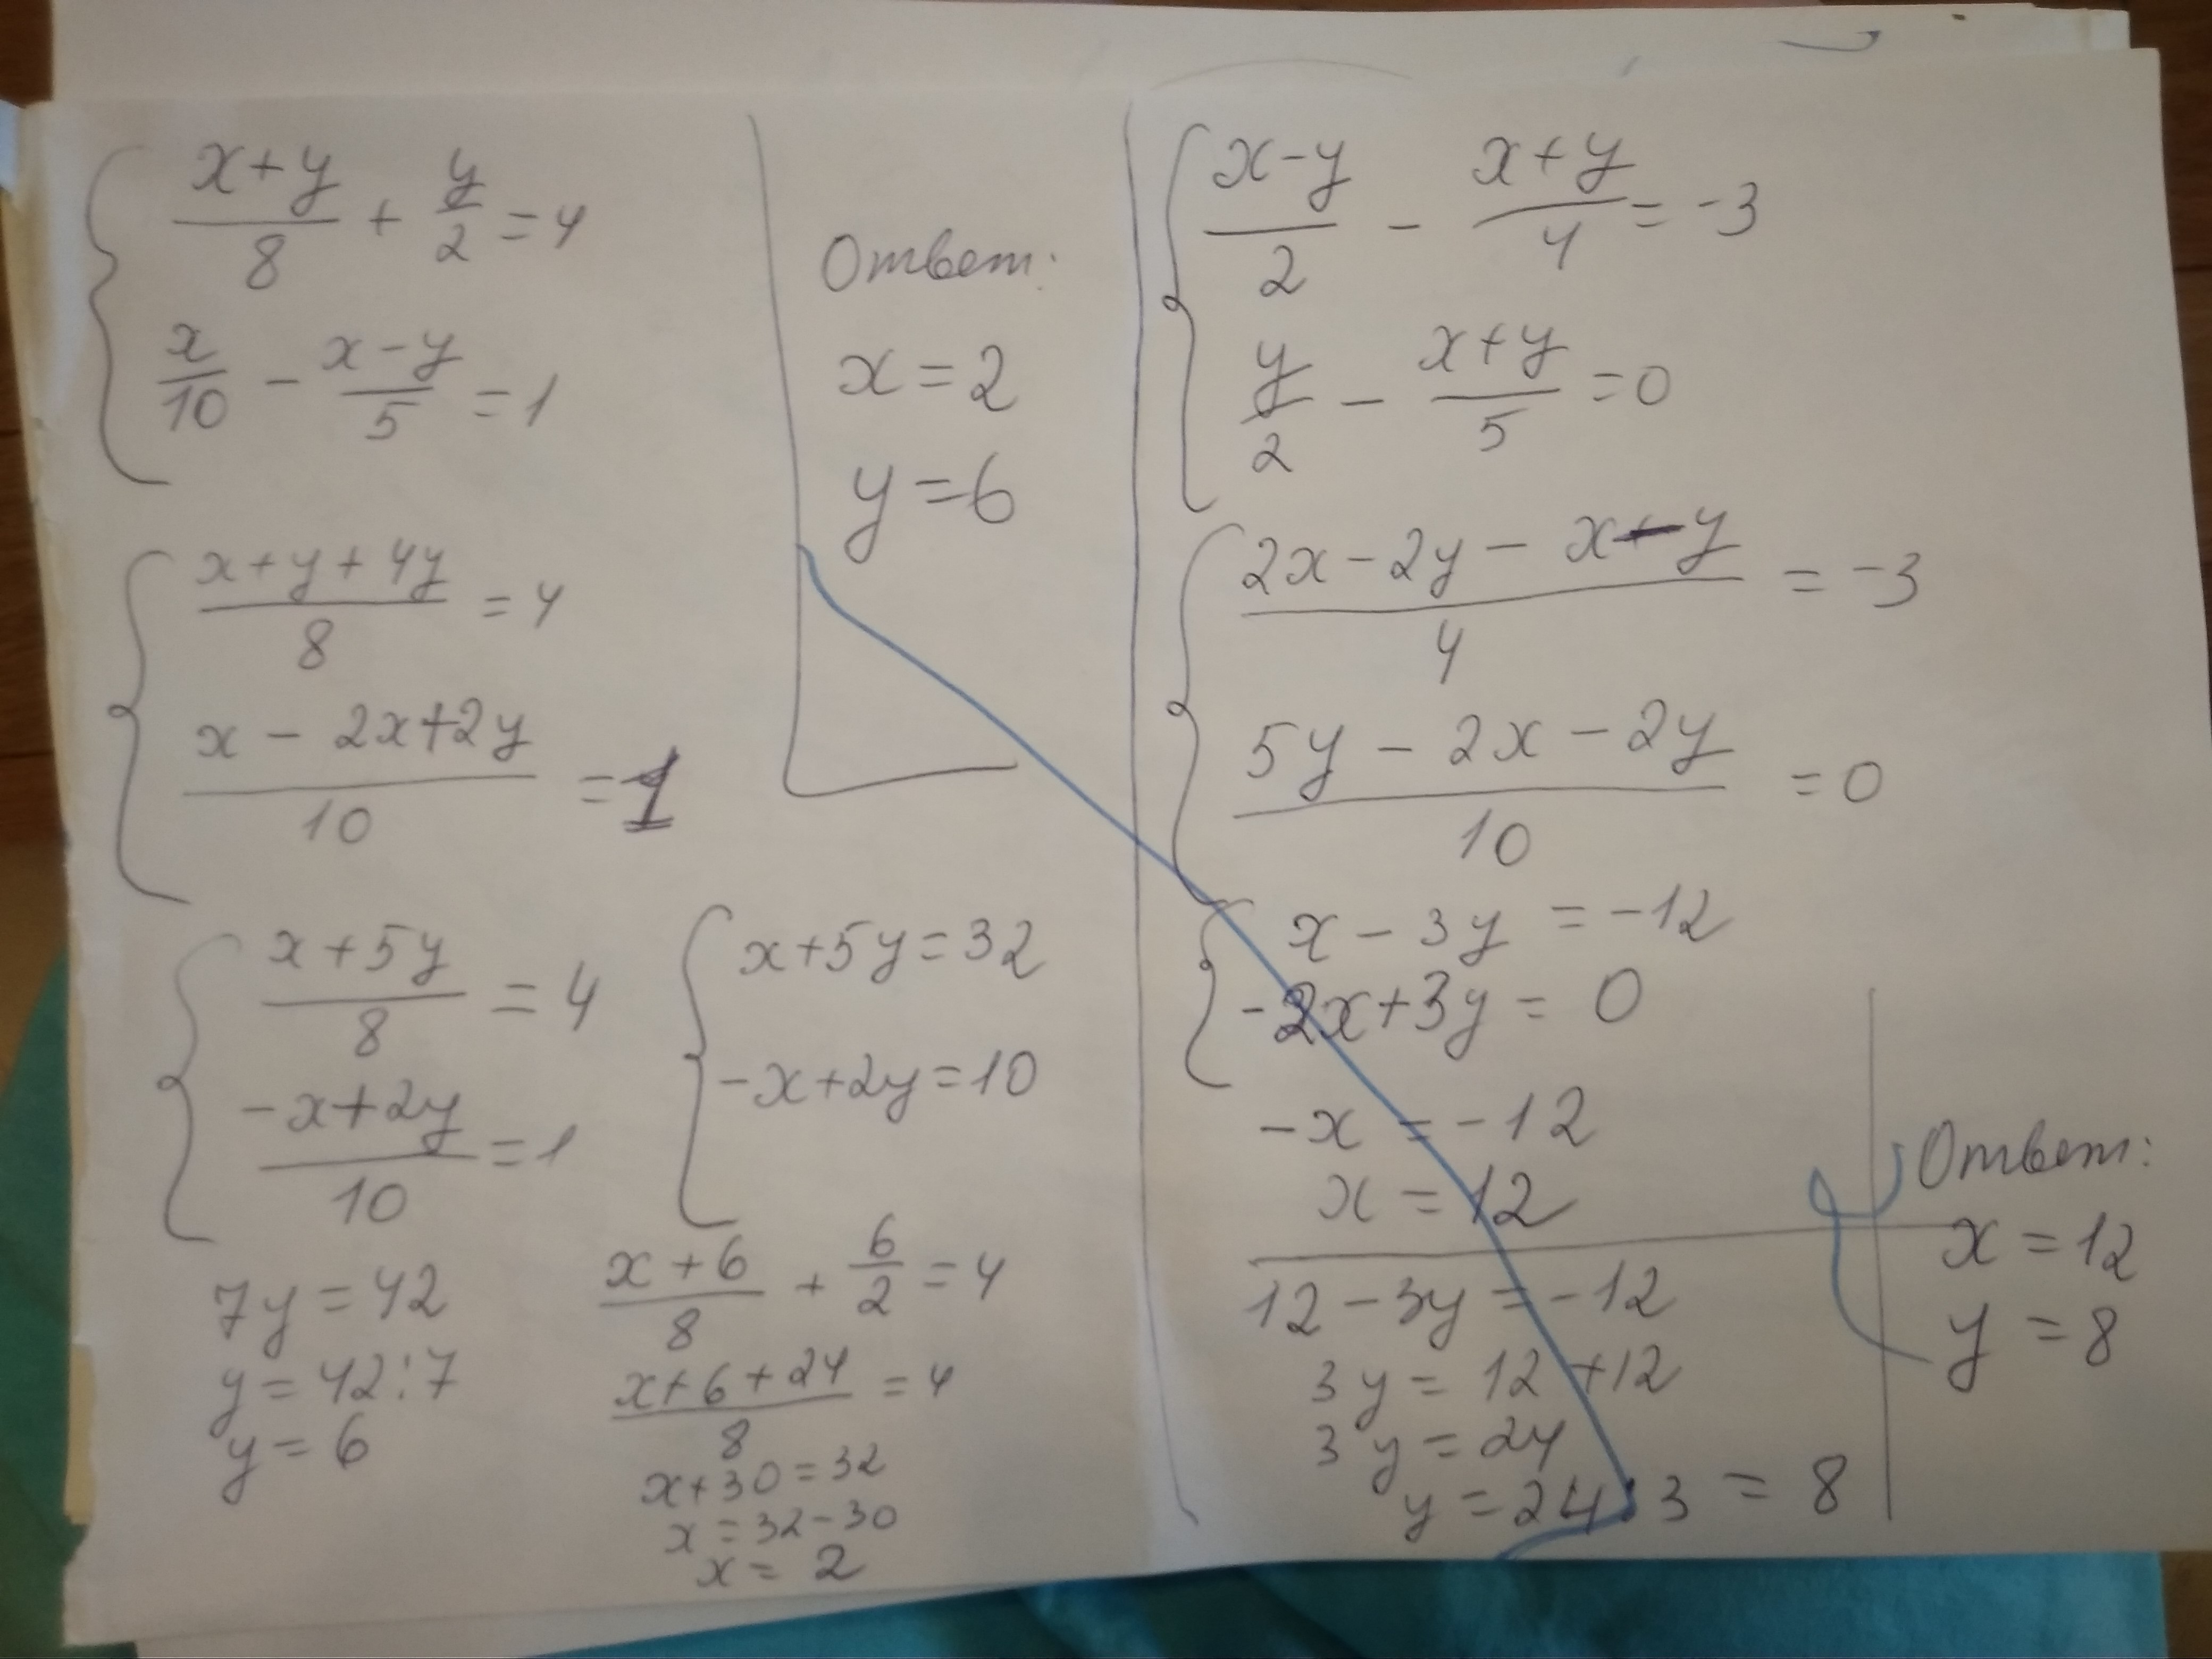 x+y/8 + y/2 = 4
x/10 - x-y/5 = 1
x+y+4y/8 = 4
x - 2x+2y/10 = 1
x+5y/8 = 4
-x+2y/10 = 1
7y = 42
y = 42:7
y = 6
Ответ:
x = 2
y = 6
x+5y = 32
-x+2y = 10
x+6/8 + 6/2 = 4
x+6+24/8 = 4
x+30 = 32
x = 32-30
x = 2
x-y/2 - x+y/4 = -3
y/2 - x+y/5 = 0
2x-2y - x-y/4 = -3
5y - 2x - 2y/10 = 0
x - 3y = -12
-2x+3y = 0
-x = -12
x = 12
12-3y = -12
3y = 12+12
3y = 24
y = 24:3 = 8
Ответ:
x = 12
y = 8